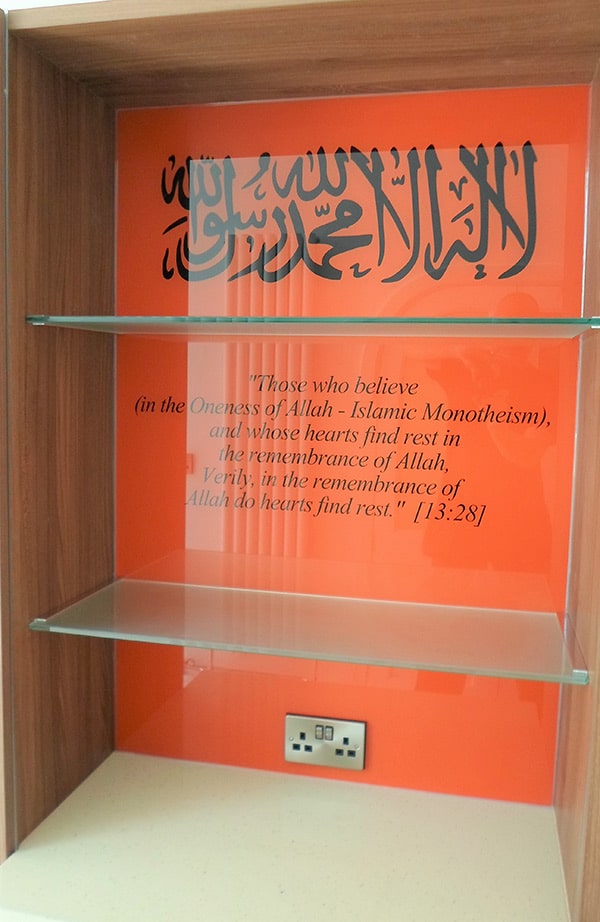 لا إله إلا الله محمد رسول الله
"Those who believe
(in the Oneness of Allah - Islamic Monotheism),
and whose hearts find rest in
the remembrance of Allah,
Verily, in the remembrance of
Allah do hearts find rest." [13:28]